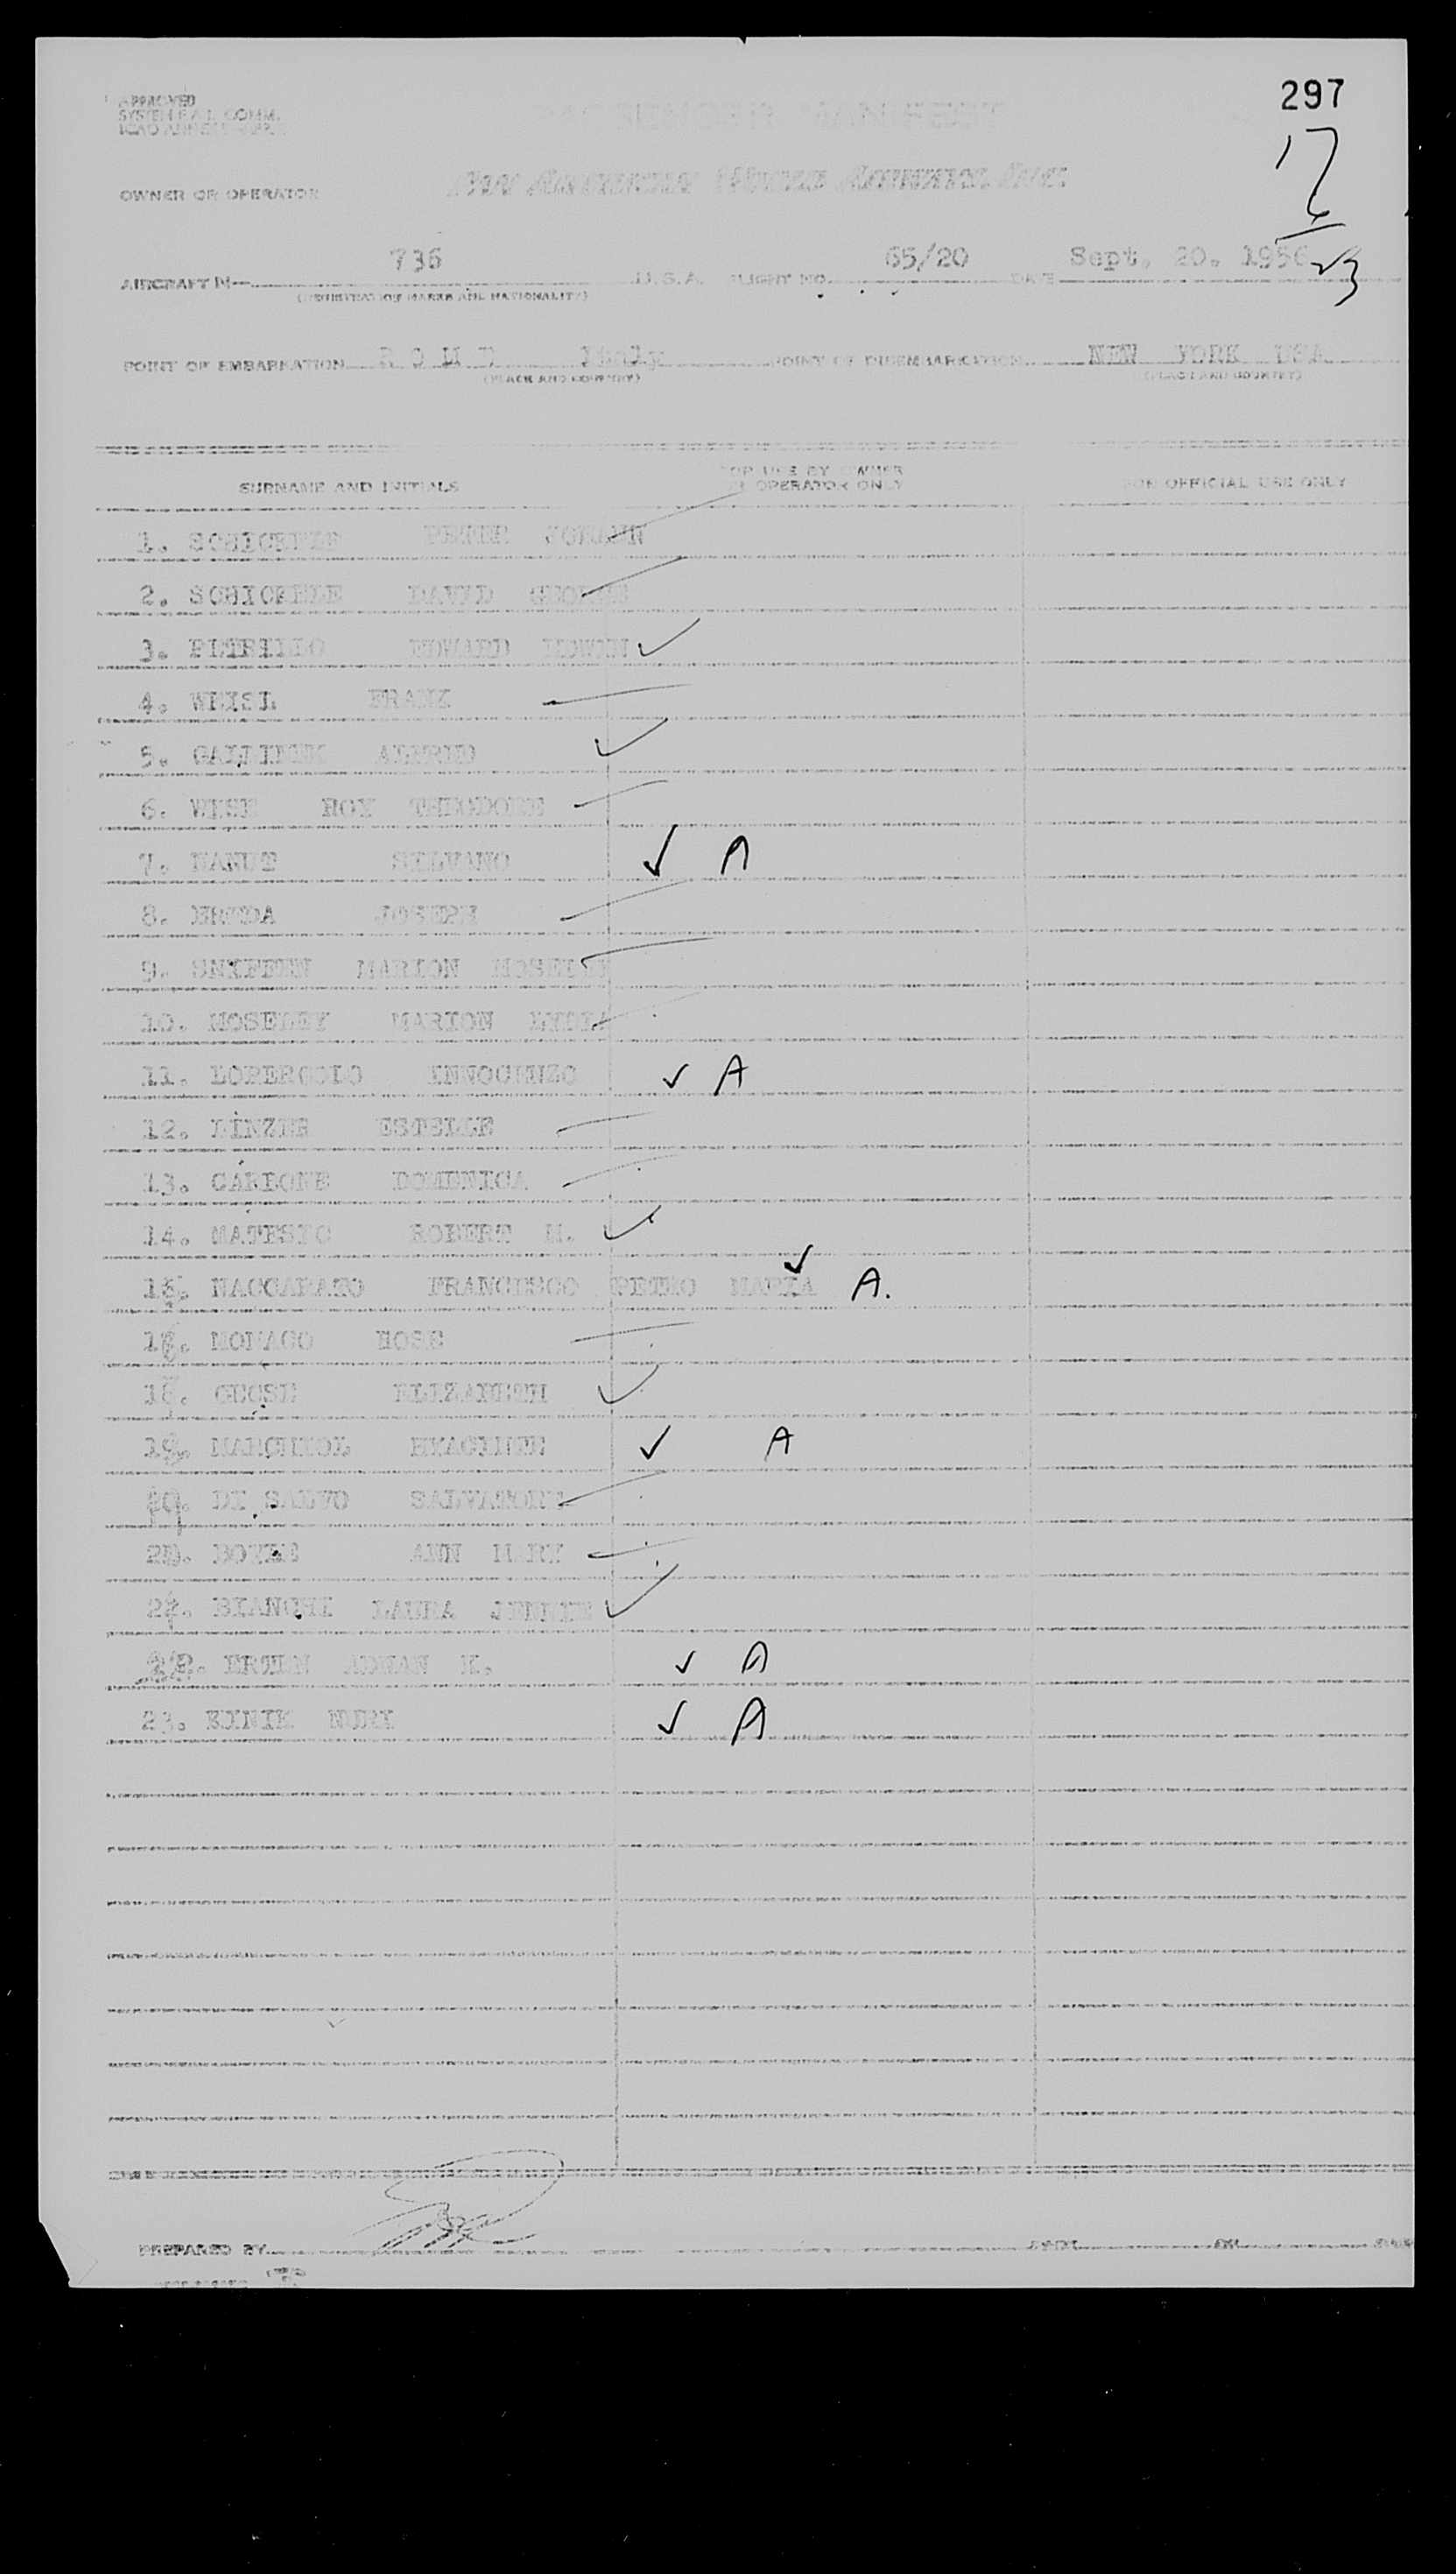 297
APPROVED
SYSTEM F.A.L. COMM.
ICAO ANNEX
PASSENGER MANIFEST
17
OWNER OR OPERATOR PAN AMERICAN WORLD AIRWAYS, INC.
23
AIRCRAFT N— 736 U.S.A. FLIGHT NO. 65/20 DATE Sept. 20. 1956
(REGISTRATION MARKS AND NATIONALITY)
POINT OF EMBARKATION R O M E Italy POINT OF DISEMBARKATION NEW YORK USA
(PLACE AND COUNTRY) (PLACE AND COUNTRY)
SURNAME AND INITIALS FOR USE BY OWNER OR OPERATOR ONLY FOR OFFICIAL USE ONLY
1. SCHICKELE PETER JOHANN
2. SCHICKELE DAVID GEORGE
3. PETRILLO EDWARD EDWIN ✓
4. WEISL FRANK
5. ALFRED ✓
6. WISE ROY THEODORE
7. SILVANO ✓ A
8. JOSEPH
9. SNIFFEN MARION MOSELEY
10. MOSELEY MARION LYDIA
11. LOPERGOLO INNOCENZO ✓ A
12. LINZER ESTELLE
13. CARIONE DOMENICA
14. ROBERT M. ✓
15. NACCARATO FRANCESCO PETRO MARIA ✓ A.
16. MONACO ROSE
17. ELIZABETH ✓
18. ✓ A
19. DI SALVO SALVATORE
20. ANN MARY
21. BIANCHI LAURA JENNIE ✓
22. ERTEN ADNAN K. ✓ A
23. NURI ✓ A
PREPARED BY